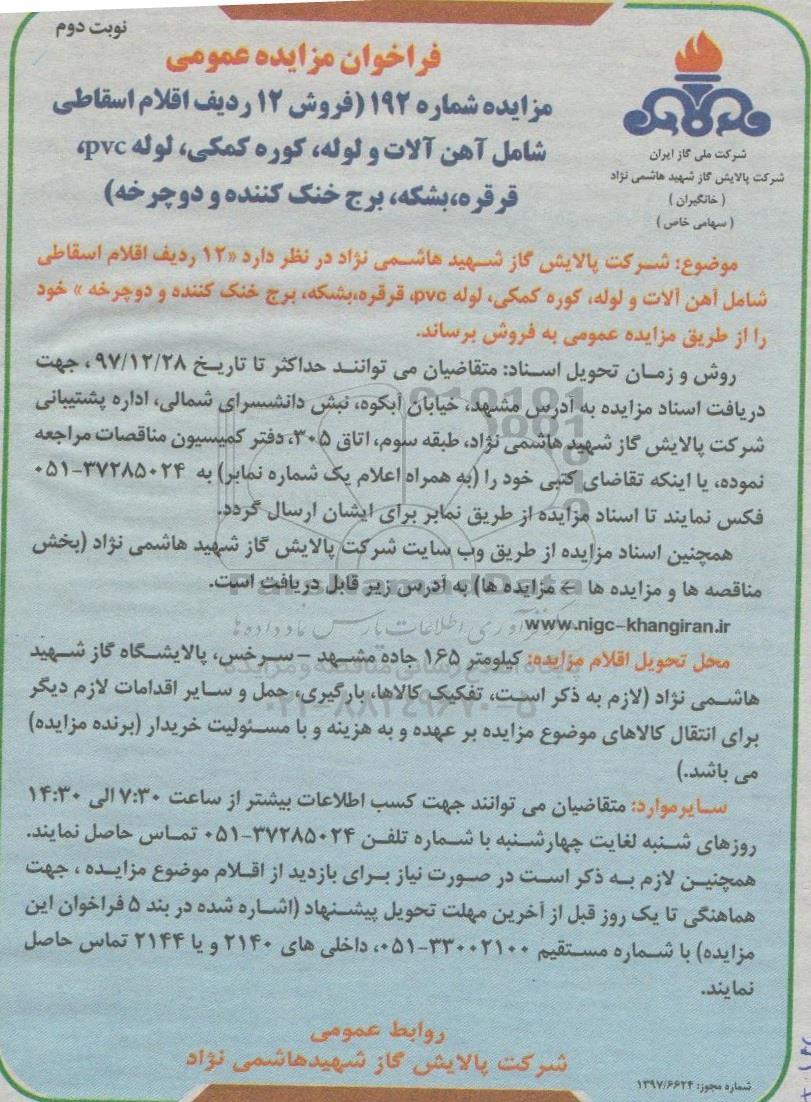 نوبت دوم
فراخوان مزایده عمومی
مزایده شماره ۱۹۲ (فروش ۱۲ ردیف اقلام اسقاطی
شامل آهن آلات و لوله، کوره کمکی، لوله pvc،
قرقره،بشکه، برج خنک کننده و دوچرخه)
شرکت ملی گاز ایران
شرکت پالایش گاز شهید هاشمی نژاد
( خانگیران )
( سهامی خاص )
موضوع: شرکت پالایش گاز شهید هاشمی نژاد در نظر دارد «۱۲ ردیف اقلام اسقاطی
شامل آهن آلات و لوله، کوره کمکی، لوله pvc، قرقره،بشکه، برج خنک کننده و دوچرخه » خود
را از طریق مزایده عمومی به فروش برساند.
روش و زمان تحویل اسناد: متقاضیان می توانند حداکثر تا تاریخ ۹۷/۱۲/۲۸ ، جهت
دریافت اسناد مزایده به آدرس مشهد، خیابان آبکوه، نبش دانشسرای شمالی، اداره پشتیبانی
شرکت پالایش گاز شهید هاشمی نژاد، طبقه سوم، اتاق ۳۰۵، دفتر کمیسیون مناقصات مراجعه
نموده، یا اینکه تقاضای کتبی خود را (به همراه اعلام یک شماره نمابر) به ۳۷۲۸۵۰۲۴-۰۵۱
فکس نمایند تا اسناد مزایده از طریق نمابر برای ایشان ارسال گردد.
همچنین اسناد مزایده از طریق وب سایت شرکت پالایش گاز شهید هاشمی نژاد (بخش
مناقصه ها و مزایده ها ← مزایده ها) به آدرس زیر قابل دریافت است.
www.nigc-khangiran.ir
محل تحویل اقلام مزایده: کیلومتر ۱۶۵ جاده مشهد – سرخس، پالایشگاه گاز شهید
هاشمی نژاد (لازم به ذکر است، تفکیک کالاها، بارگیری، حمل و سایر اقدامات لازم دیگر
برای انتقال کالاهای موضوع مزایده بر عهده و به هزینه و با مسئولیت خریدار (برنده مزایده)
می باشد.)
سایرموارد: متقاضیان می توانند جهت کسب اطلاعات بیشتر از ساعت ۷:۳۰ الی ۱۴:۳۰
روزهای شنبه لغایت چهارشنبه با شماره تلفن ۳۷۲۸۵۰۲۴-۰۵۱ تماس حاصل نمایند.
همچنین لازم به ذکر است در صورت نیاز برای بازدید از اقلام موضوع مزایده ، جهت
هماهنگی تا یک روز قبل از آخرین مهلت تحویل پیشنهاد (اشاره شده در بند ۵ فراخوان این
مزایده) با شماره مستقیم ۳۳۰۰۲۱۰۰-۰۵۱، داخلی های ۲۱۴۰ و یا ۲۱۴۴ تماس حاصل
نمایند.
روابط عمومی
شرکت پالایش گاز شهیدهاشمی نژاد
شماره مجوز: ۱۳۹۷/۶۶۲۴
ParsNamadData
۰۲۱-۸۸۳۴۹۶۷۰-۵